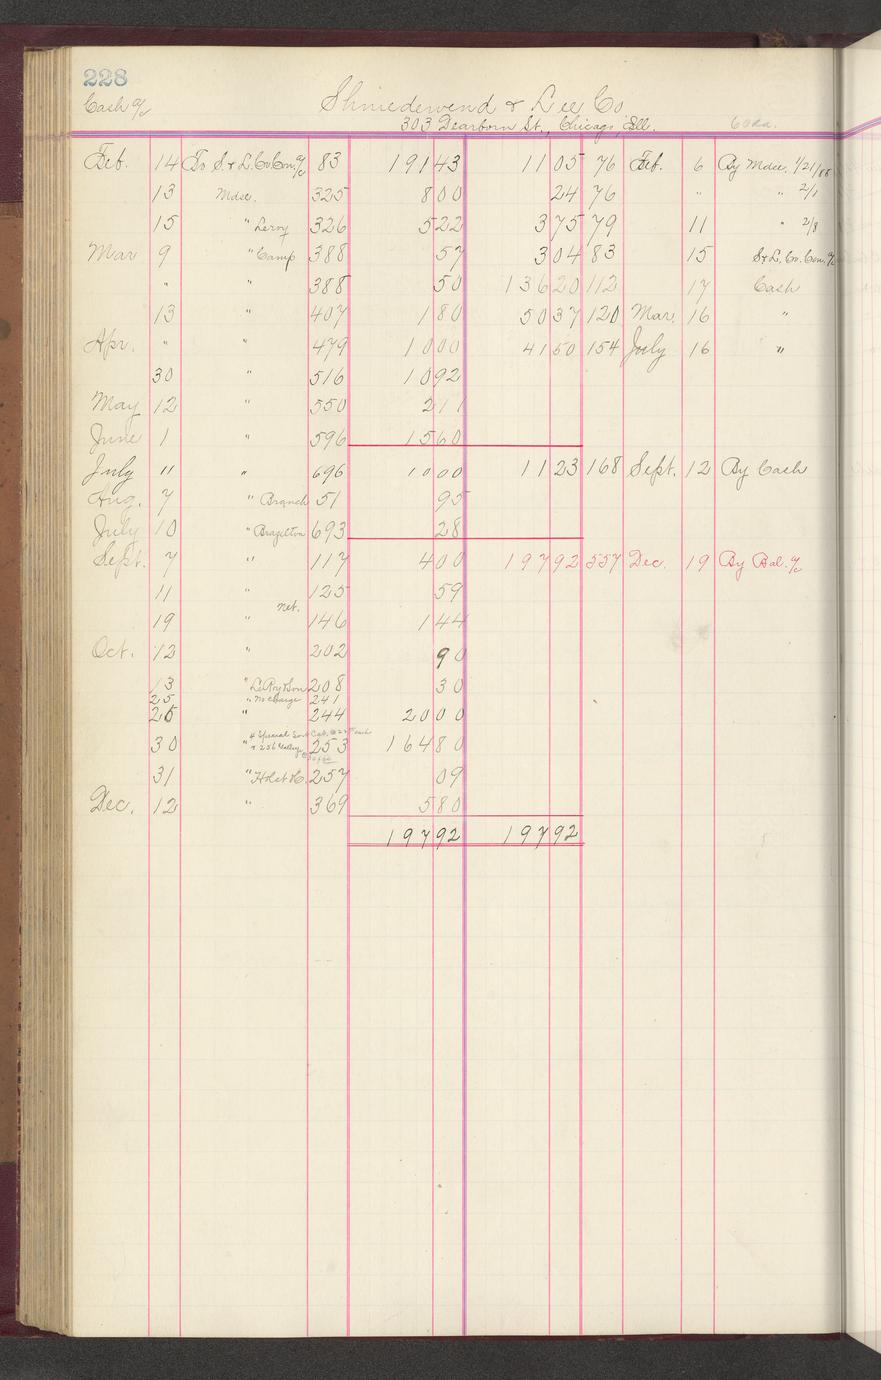 228
Cash a/c
Shniedewend & Lee Co
303 Dearborn St., Chicago, Ill. 60 da.
Feb. 14 To S. & L. Co Con a/c 83 191 43 11 05 76 Feb. 6 By Mdse. 1/21/88
13 Mdse. 325 8 00 24 76 " " 2/1
15 " Leroy 326 5 22 3 75 79 11 " 2/8
Mar 9 " Camp 388 57 3 04 83 15 S & L. Co. Con. a/c
" " 388 50 136 20 112 17 Cash
13 " 407 1 80 50 37 120 Mar. 16 "
Apr. " " 479 10 00 41 50 154 July 16 "
30 " 516 10 92
May 12 " 550 2 11
June 1 " 596 15 60
July 11 " 696 10 00 11 23 168 Sept. 12 By Cash
Aug. 7 " Branch 51 95
July 10 " Brazelton 693 28
Sept. 7 " 117 4 00 197 92 557 Dec. 19 By Bal. a/c
11 " 125 59
19 " net. 146 1 44
Oct. 12 " 202 90
13 " LeRoy & Son 208 30
25 " No charge 241
26 " 244 20 00
30 " 253 164 80
31 " Holst & C. 257 09
Dec. 12 " 369 5 80
197 92 197 92